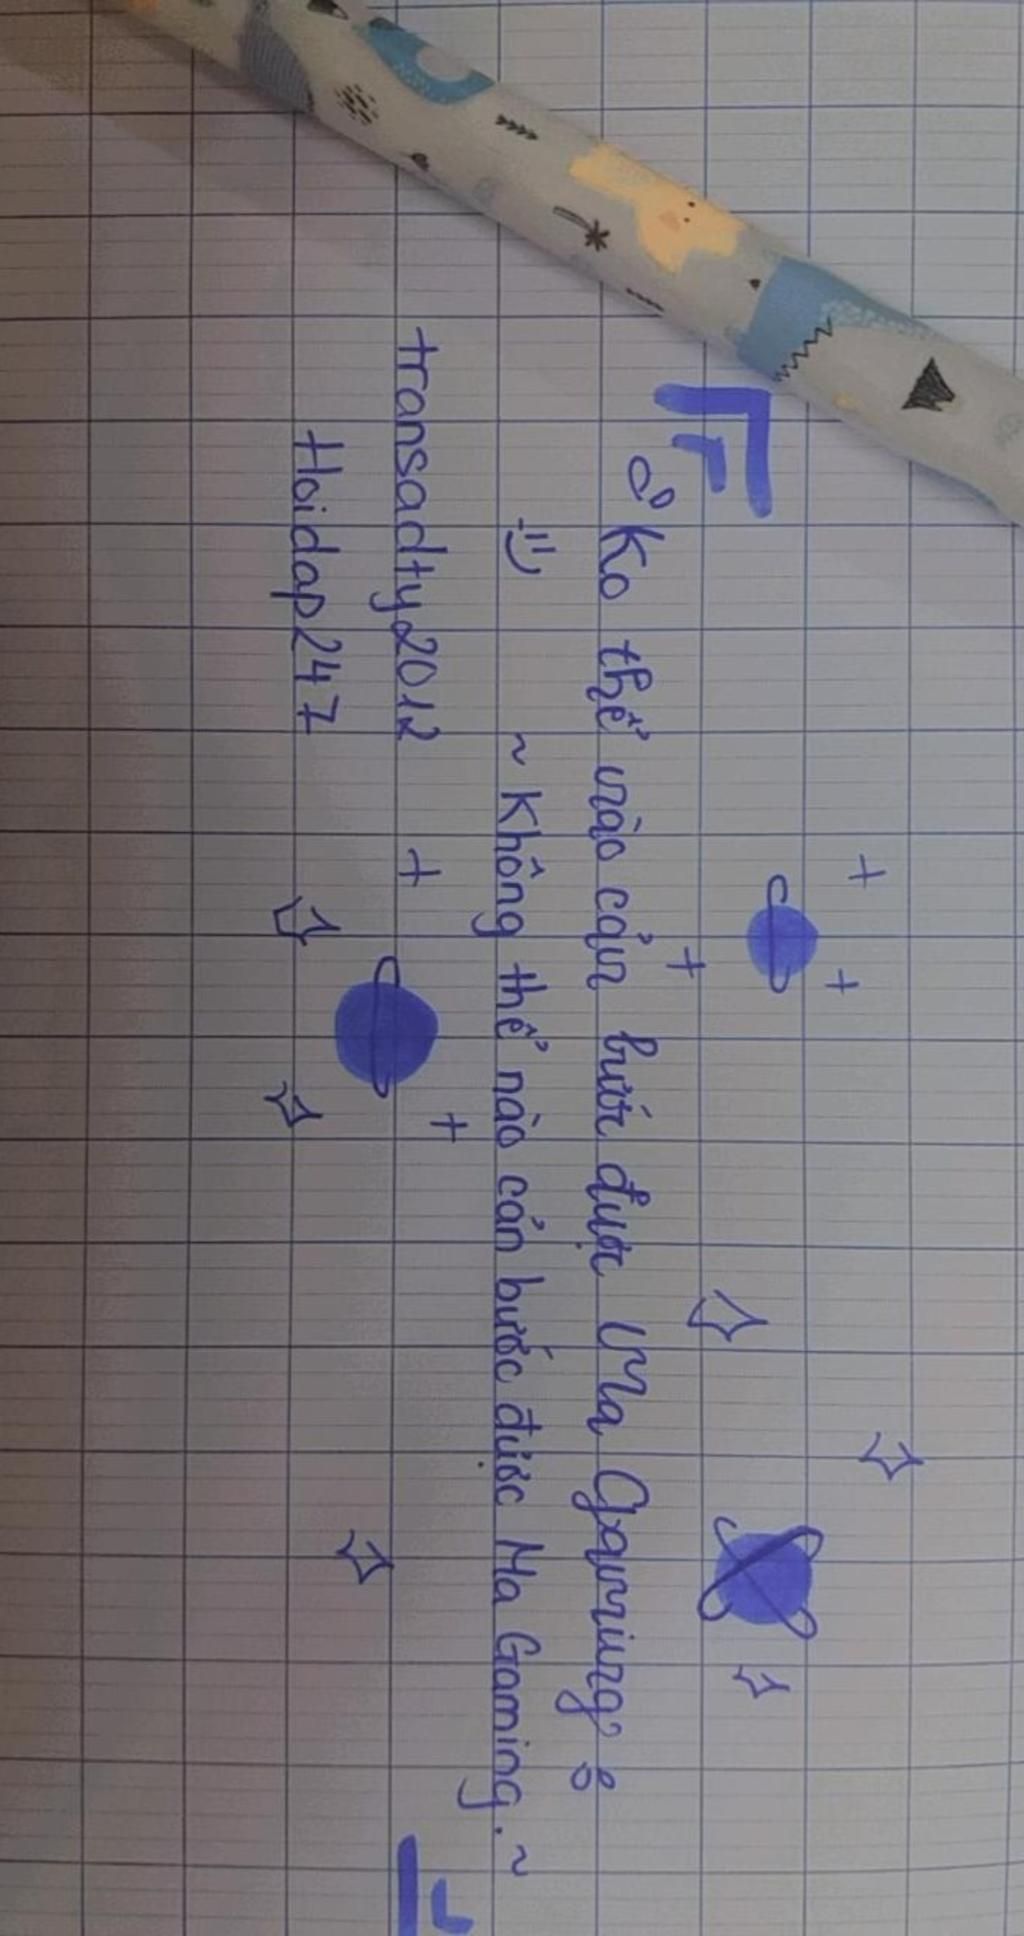 Ko thể nào cản bước được Ma Gaming
~ Không thể nào cản bước được Ma Gaming. ~
transadty2012
Hoidap247